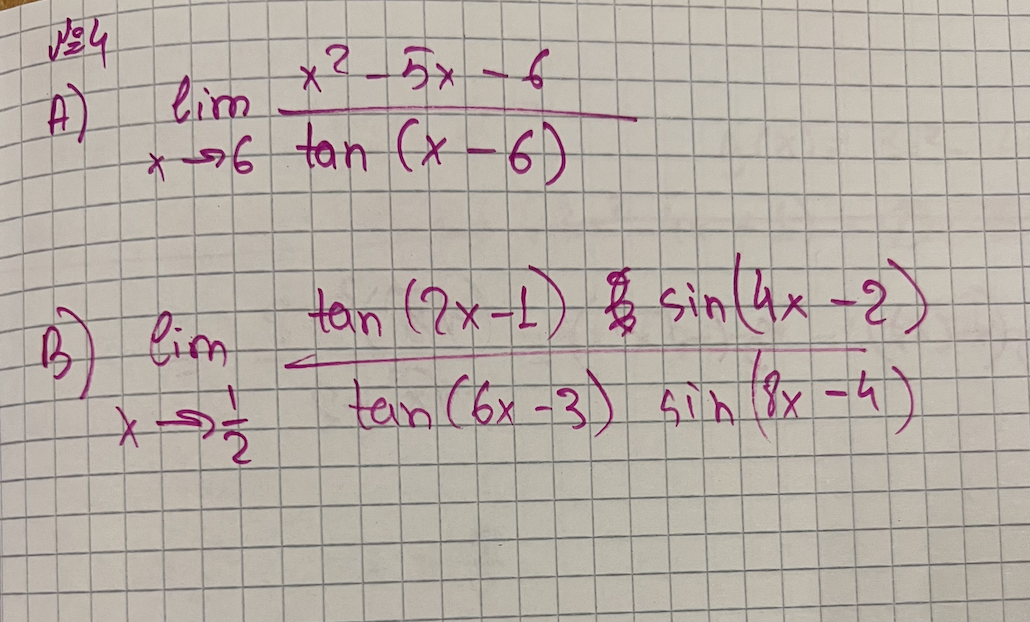 №4
A) lim x→6 (x² - 5x - 6) / (tan (x - 6))
B) lim x→1/2 (tan (2x - 1) sin(4x - 2)) / (tan(6x - 3) sin(8x - 4))